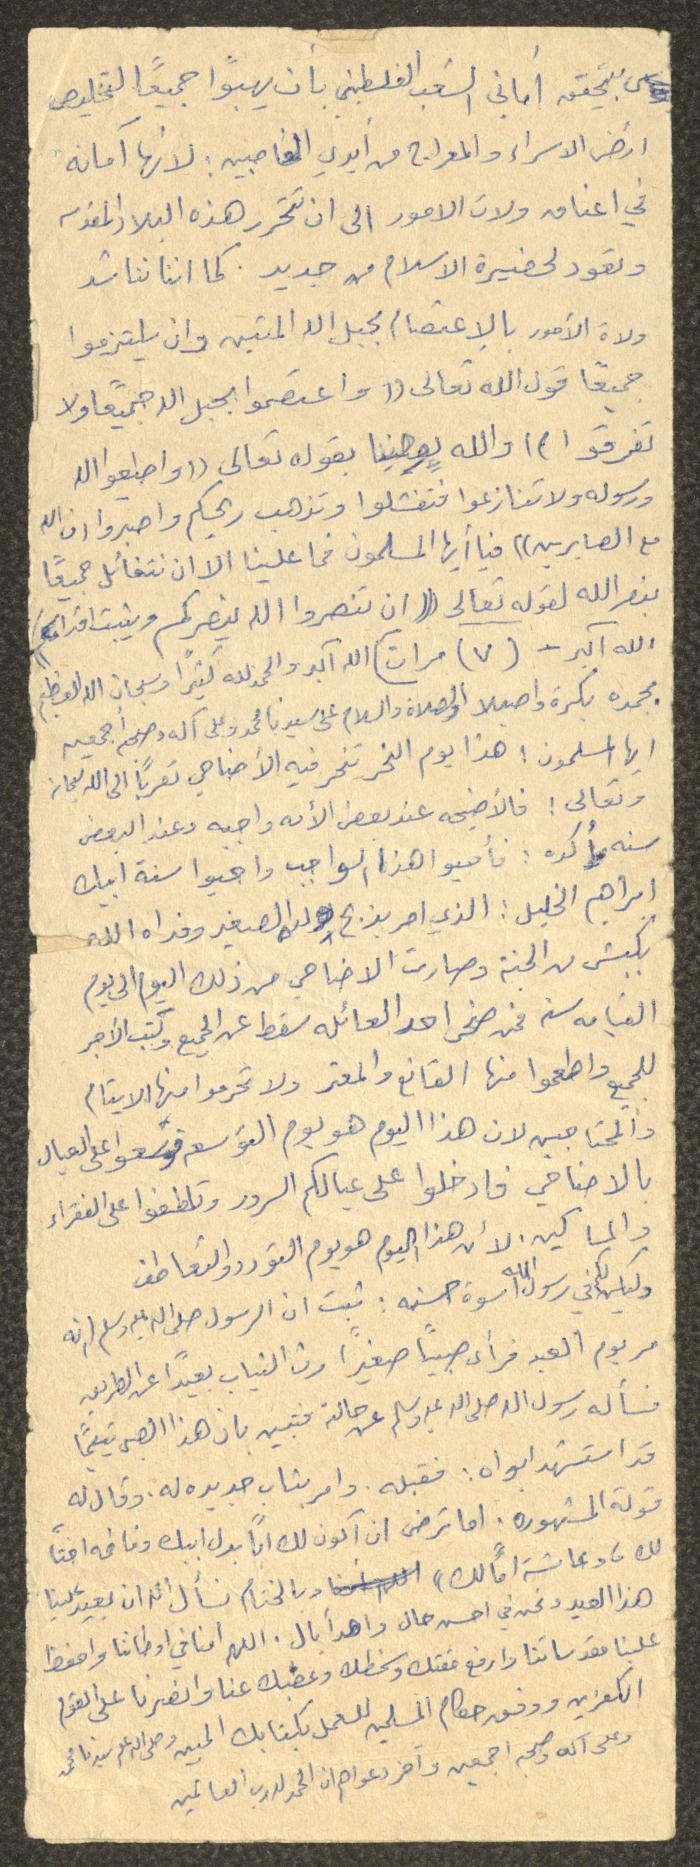 بتحقق أماني الشعب الفلسطيني بأن يهبوا جميعًا لتخليص
ارض الاسراء والمعراج من أيدي الغاصبين : لانها أمانه
في اعناق ولات الامور الى ان تتحرر هذه البلاد المقدسه
وتعود لحضيرة الاسلام من جديد . كما اننا نناشد
ولاة الأمور بالإعتصام بحبل الله المتين وان يلتزموا
جميعًا قول الله تعالى (( واعتصموا بحبل الله جميعًا ولا
تفرقوا )) والله يوصينا بقوله تعالى (( واطيعوا الله
ورسوله ولا تنازعوا فتفشلوا وتذهب ريحكم واصبروا ان الله
مع الصابرين )) فيا أيها المسلمون فما علينا الا ان نتفائل جميعًا
بنصر الله لقوله تعالى (( ان تنصروا الله ينصركم ويثبت اقدامكم ))
الله أكبر - (٧) مرات) الله أكبر والحمد لله كثيرًا وسبحان الله العظيم
بحمده بكرة واصيلا والصلاة والسلام على سيدنا محمد وعلى آله وصحبه أجمعين
ايها المسلمون : هذا يوم النحر تنحر فيه الأضاحي تقربًا الى الله سبحانه
وتعالى : فالأضيحه عند بعض الأئمه واجبه وعند البعض
سنه مأكده : فأحيوا هذا الواجب واحيوا سنة ابيك
ابراهيم الخليل : الذي امر بذبح ولده الصغير وفداه الله
بكبش من الجنة وصارت الاضاحي من ذلك اليوم الى يوم
القيامه سنه فمن ضحى احد العائله سقط عن الجميع وكتب الأجر
للجميع واطعموا منها القانع والمعتر ولا تحرموا منها الايتام
والمحتاجين لان هذا اليوم هو يوم التوسعه فوسعوا على العيال
بالاضاحي فادخلوا على عيالكم السرور وتلطفوا على الفقراء
والمساكين . لأن هذا اليوم هو يوم التودد والتعاطف
وليكن لكم في رسول الله اسوة حسنه : ثبت ان الرسول صلى الله عليه وسلم انه
مر يوم العيد فرأى صبيًا صغيرًا رث الثياب بعيدًا عن الطريق
فسأله رسول الله صلى الله عليه وسلم عن حالة فتبين بان هذا الصبي يتيمًا
قد استشهد ابواه : فقبله . وامر بثياب جديده له . وقال له
قولة المشهوره . اما ترضى ان أكون لك ابًا بدل ابيك وفاطمه اختًا
لك ، وعائشة امًا لك )) وبالختام نسأل الله ان يعيد علينا
هذا العيد ونحن في احسن حال واهدأ بال . اللهم امنا في اوطاننا واحفظ
علينا مقدساتنا وارفع مقتك وسخطك وغضبك عنا وانصرنا على القوم
الكفرين ووفق حكام المسلمين للعمل بكتابك المبين وصلى الله على سيدنا محمد
وعلى آله وصحبه اجمعين وآخر دعواهم ان الحمد لله رب العالمين